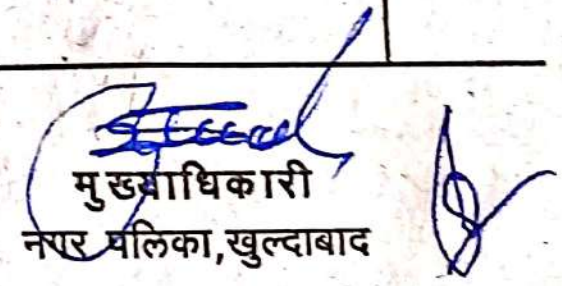 मुख्याधिकारी
नगर पलिका,खुल्दाबाद